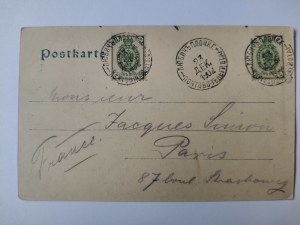 Postkarte
23
ДЕК
Monsieur
Jacques Simon
France.
Paris
87 boul. Strasbourg